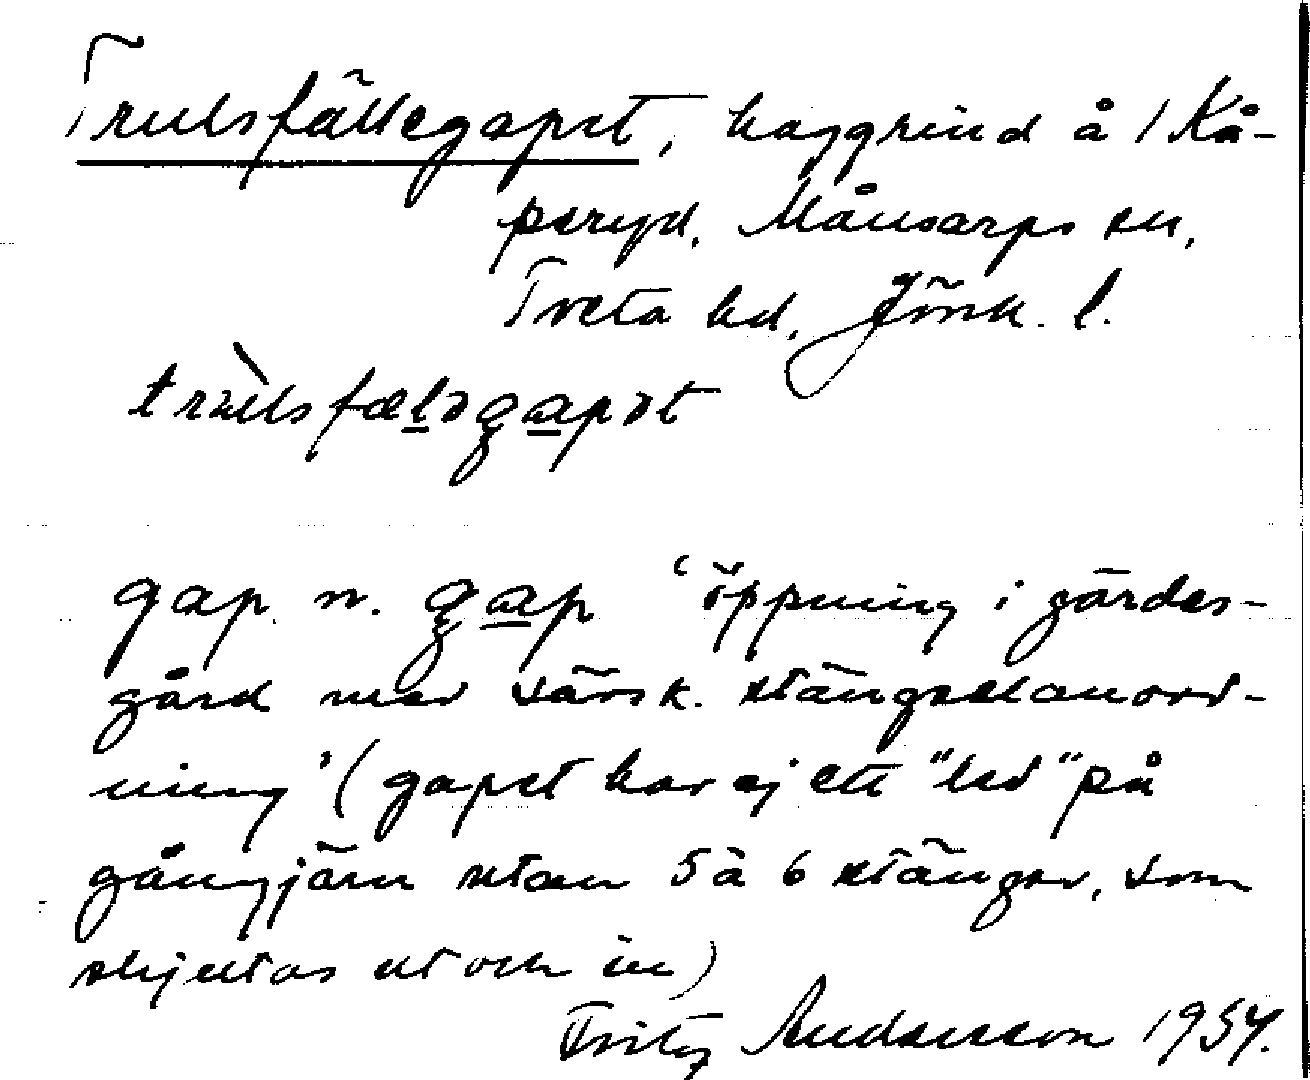 Trulsfällegapet, haggrind å 1 Kå-
peryd, Månsarps sn,
Tveta hd, Jönk. l.
trùlsfæləgapət
gap n. gap 'öppning i gärdes-
gård med särsk. stängselanord-
ning' (gapet har ej ett "led" på
gångjärn utan 5 à 6 stänger, som
skjutas ut och in)
Fritz Andersson 1934.